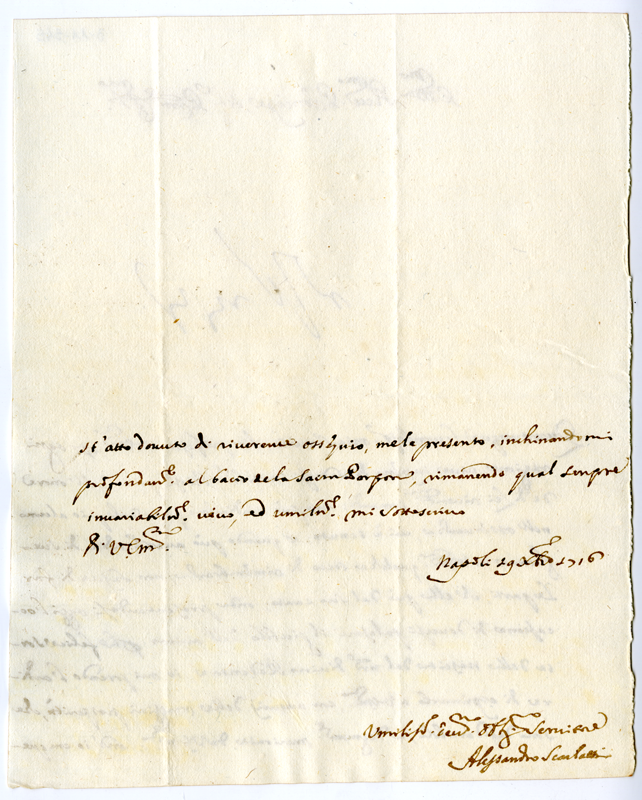 st'atto douuto di riuerente ossequio, mele presento, inchinandomi
profondam.te al bacio de la Sacra Porpora, rimanendo qual sempre
inuariabilm.te uiuo, ed umilm.te mi sottoscriuo
di V. Em.za
Napoli 29 Xbre 1716
Umiliss.o diu.mo obb.mo Seruitore
Alessandro Scarlatti